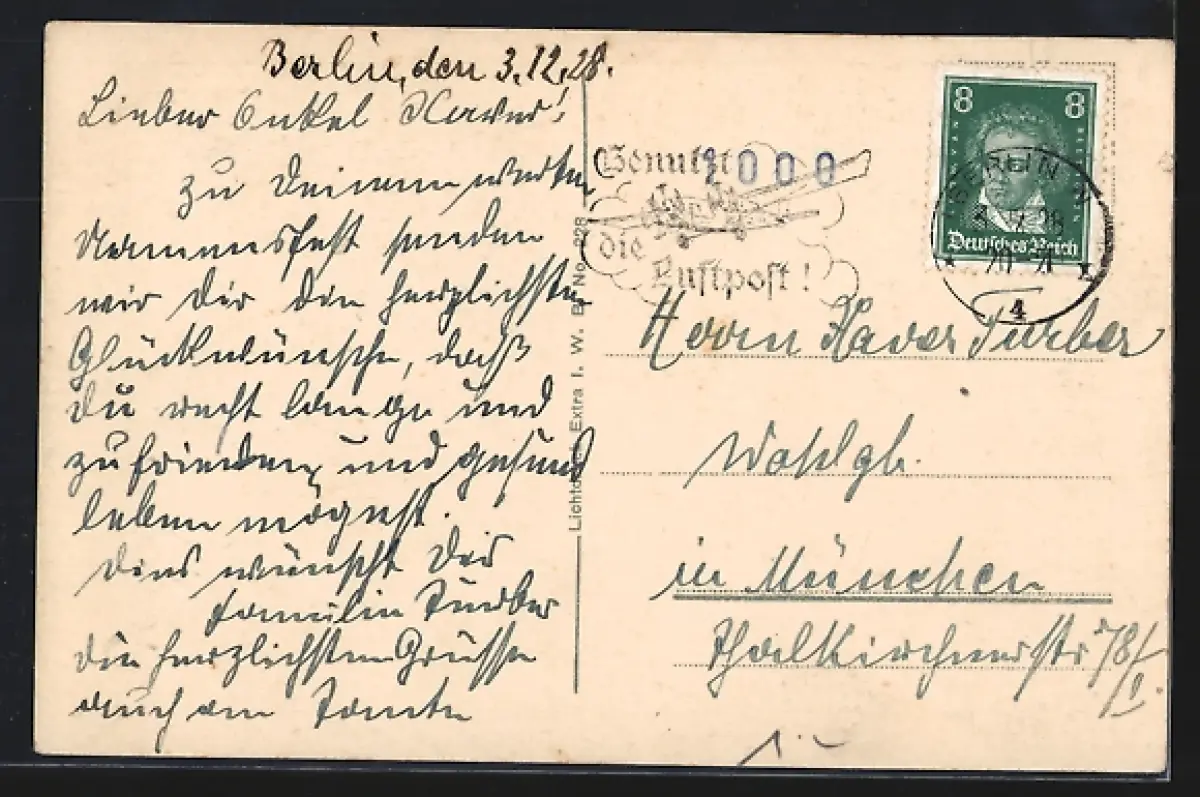 Berlin, den 3.12.28.
Lieber Onkel Xaver!
Zu Deinem werten
Namensfest senden
wir Dir die herzlichsten
Glückwünsche, daß
Du recht lange und
zufrieden und gesund
leben mögest.
Dies wünscht Dir
Familie Turber
die herzlichsten Grüsse
auch an Tante
Lichtdruck Extra I. W. B. No. 228
Benutzt
1000
die
Luftpost!
8 8
Deutsches Reich
BERLIN N
3.12.28
20-21
4
Herrn Xaver Turber
Wohlgb.
in München
Thalkirchnerstr 78/I.